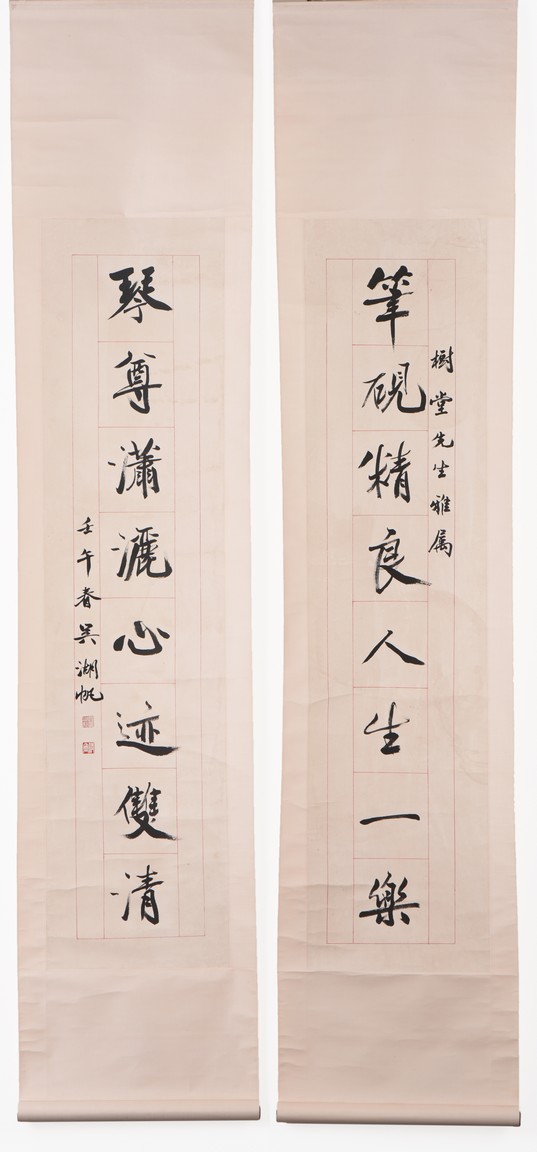 樹堂先生雅属
筆硯精良人生一樂
琴尊瀟灑心迹雙清
壬午春吴湖帆